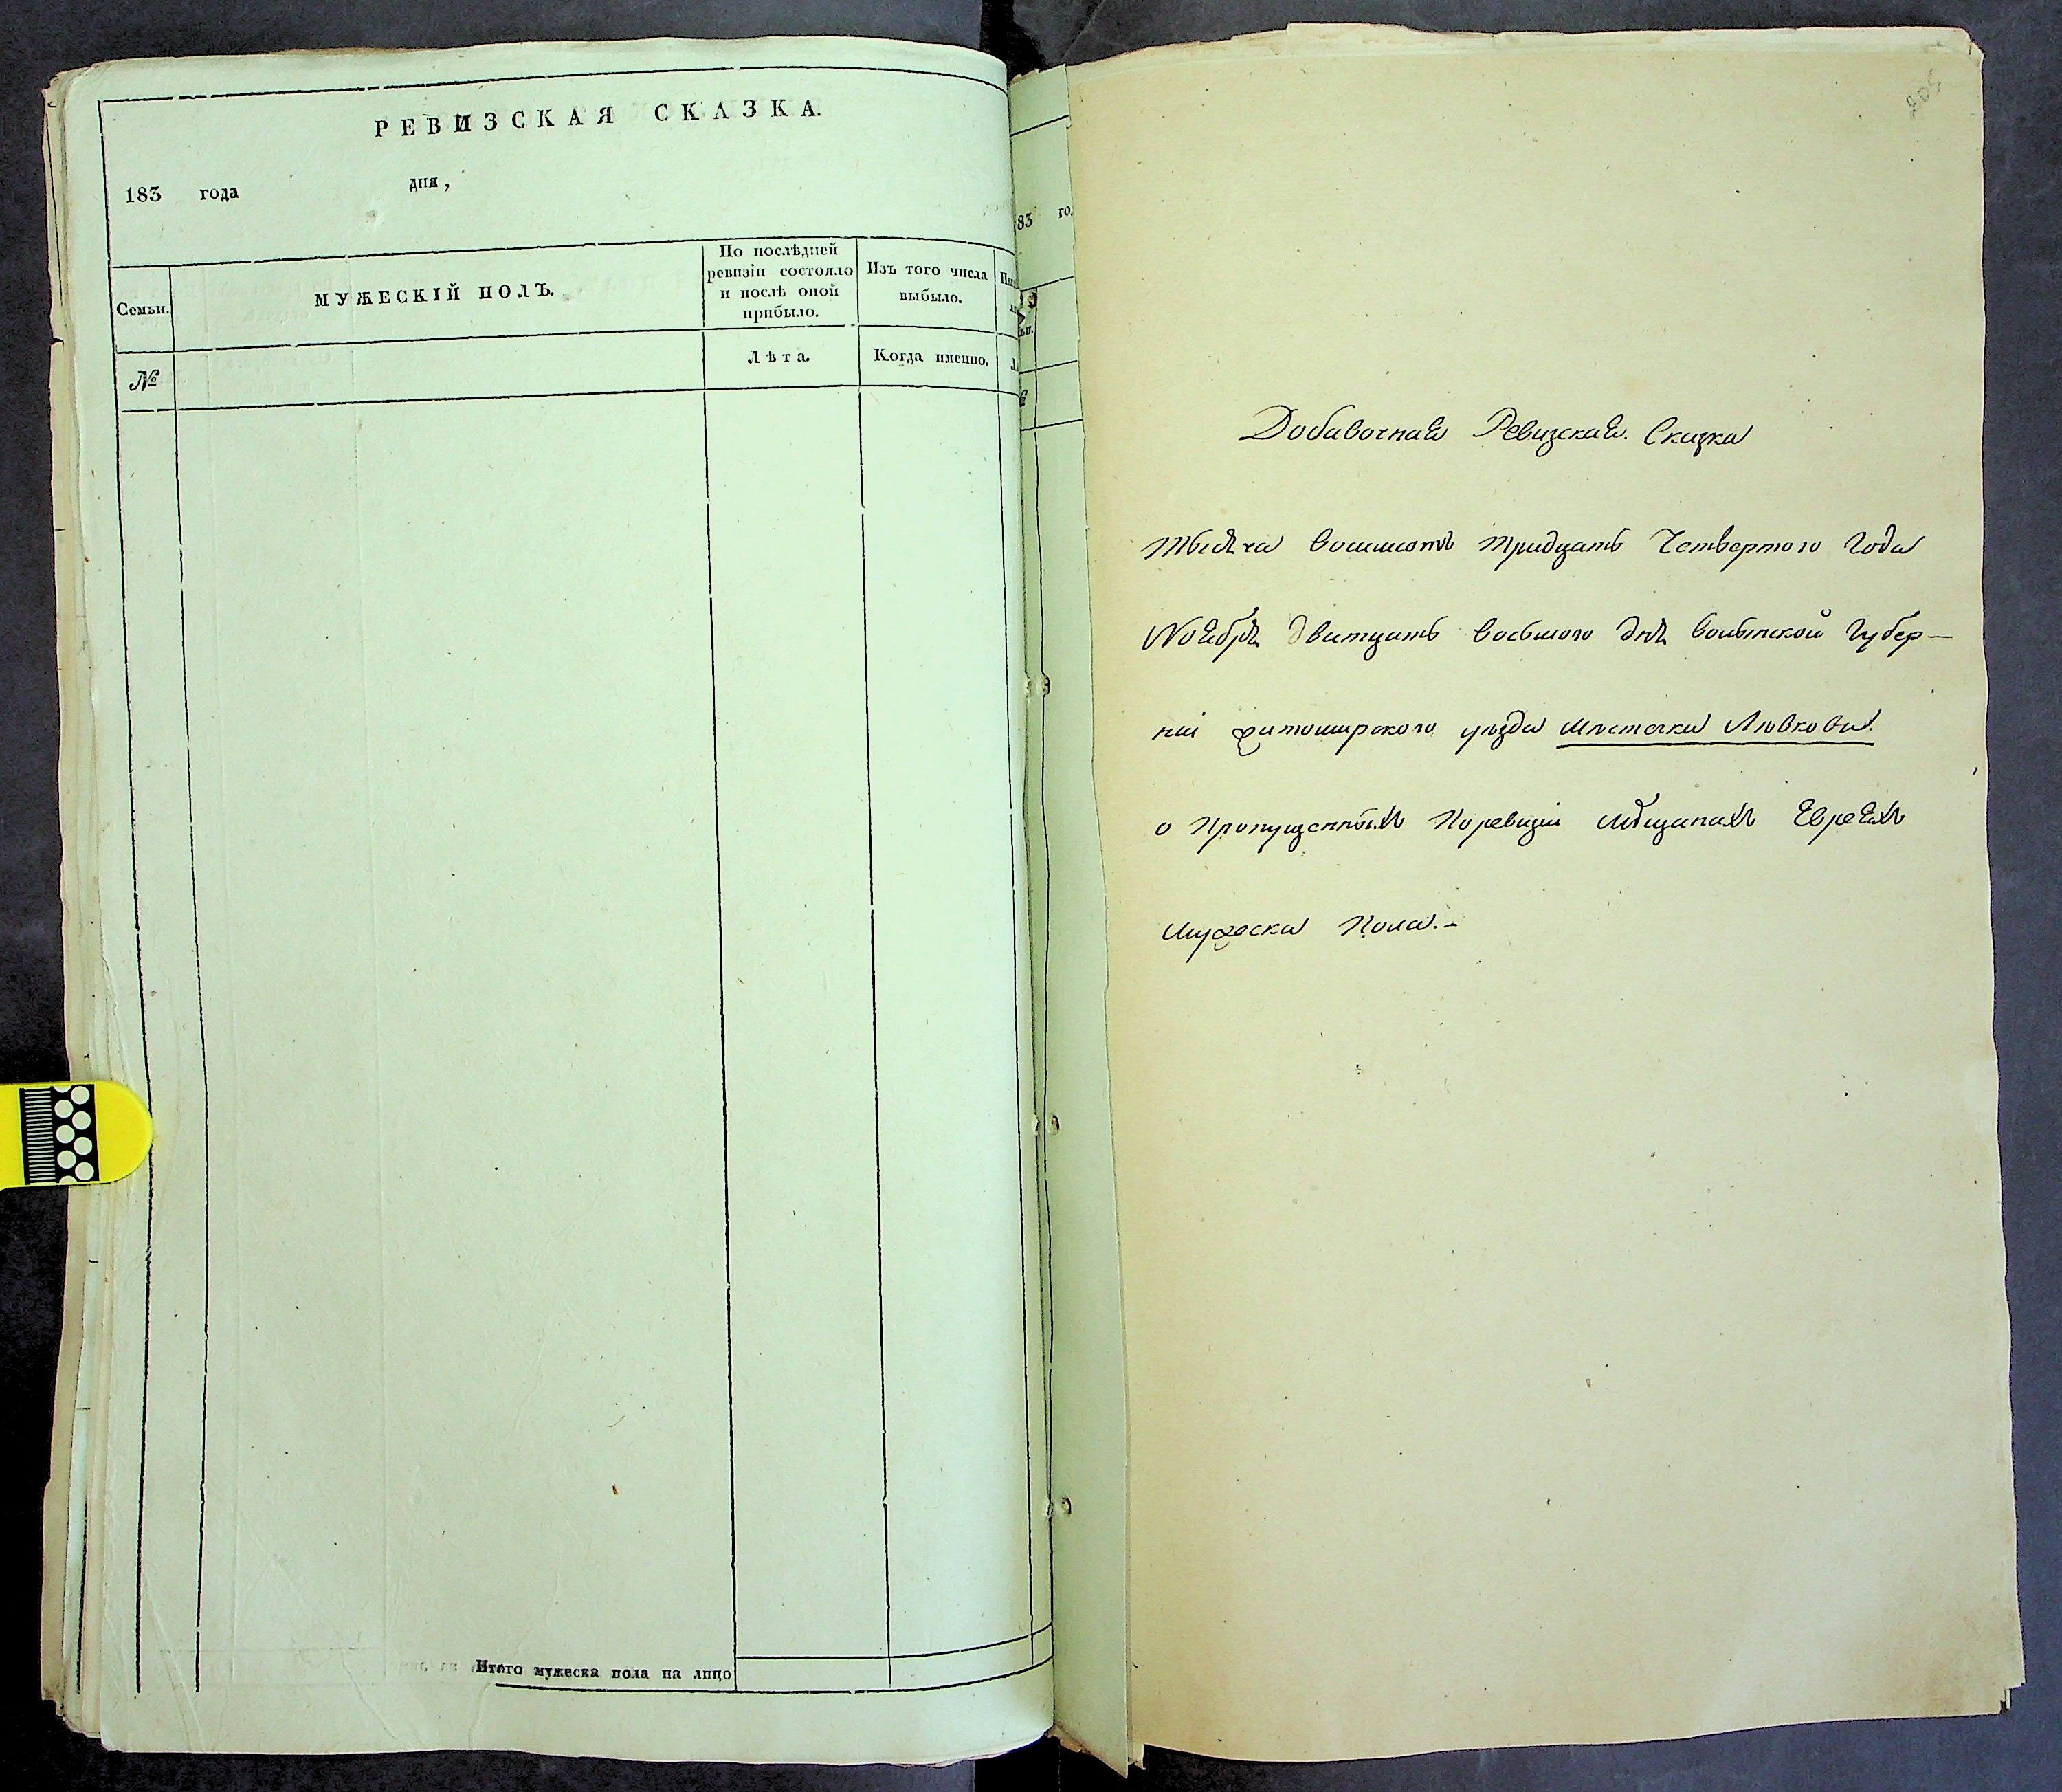 РЕВИЗСКАЯ СКАЗКА.
183 года дня,
Семьи.
МУЖЕСКІЙ ПОЛЪ.
По послѣдней
ревизіи состояло
и послѣ оной
прибыло.
Изъ того числа
выбыло.
№
Лѣта
Когда именно.
Итого мужеска пола на лицо
83 го
Добавочная Ревизская Сказка
тысяча восимсотъ тридцать Четвертого Года
Ноября дватцать восьмого дня Волынской Губер-
ніи Житомирского уезда местечка Любкова.
о Пропущенныхъ По ревизіи мѣщанахъ Евреяхъ
мужеска Пола.-